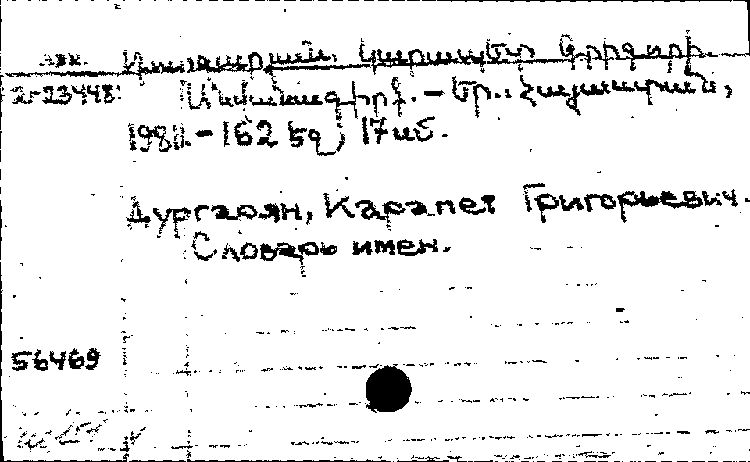 Դուրգարյան, Կարապետ Գրիգորի.
Անվանագիրք. – Եր., Հայաստան,
1981. – 162 էջ, 17 սմ.
Дургарян, Карапет Григорьевич.
Словарь имен.
56469